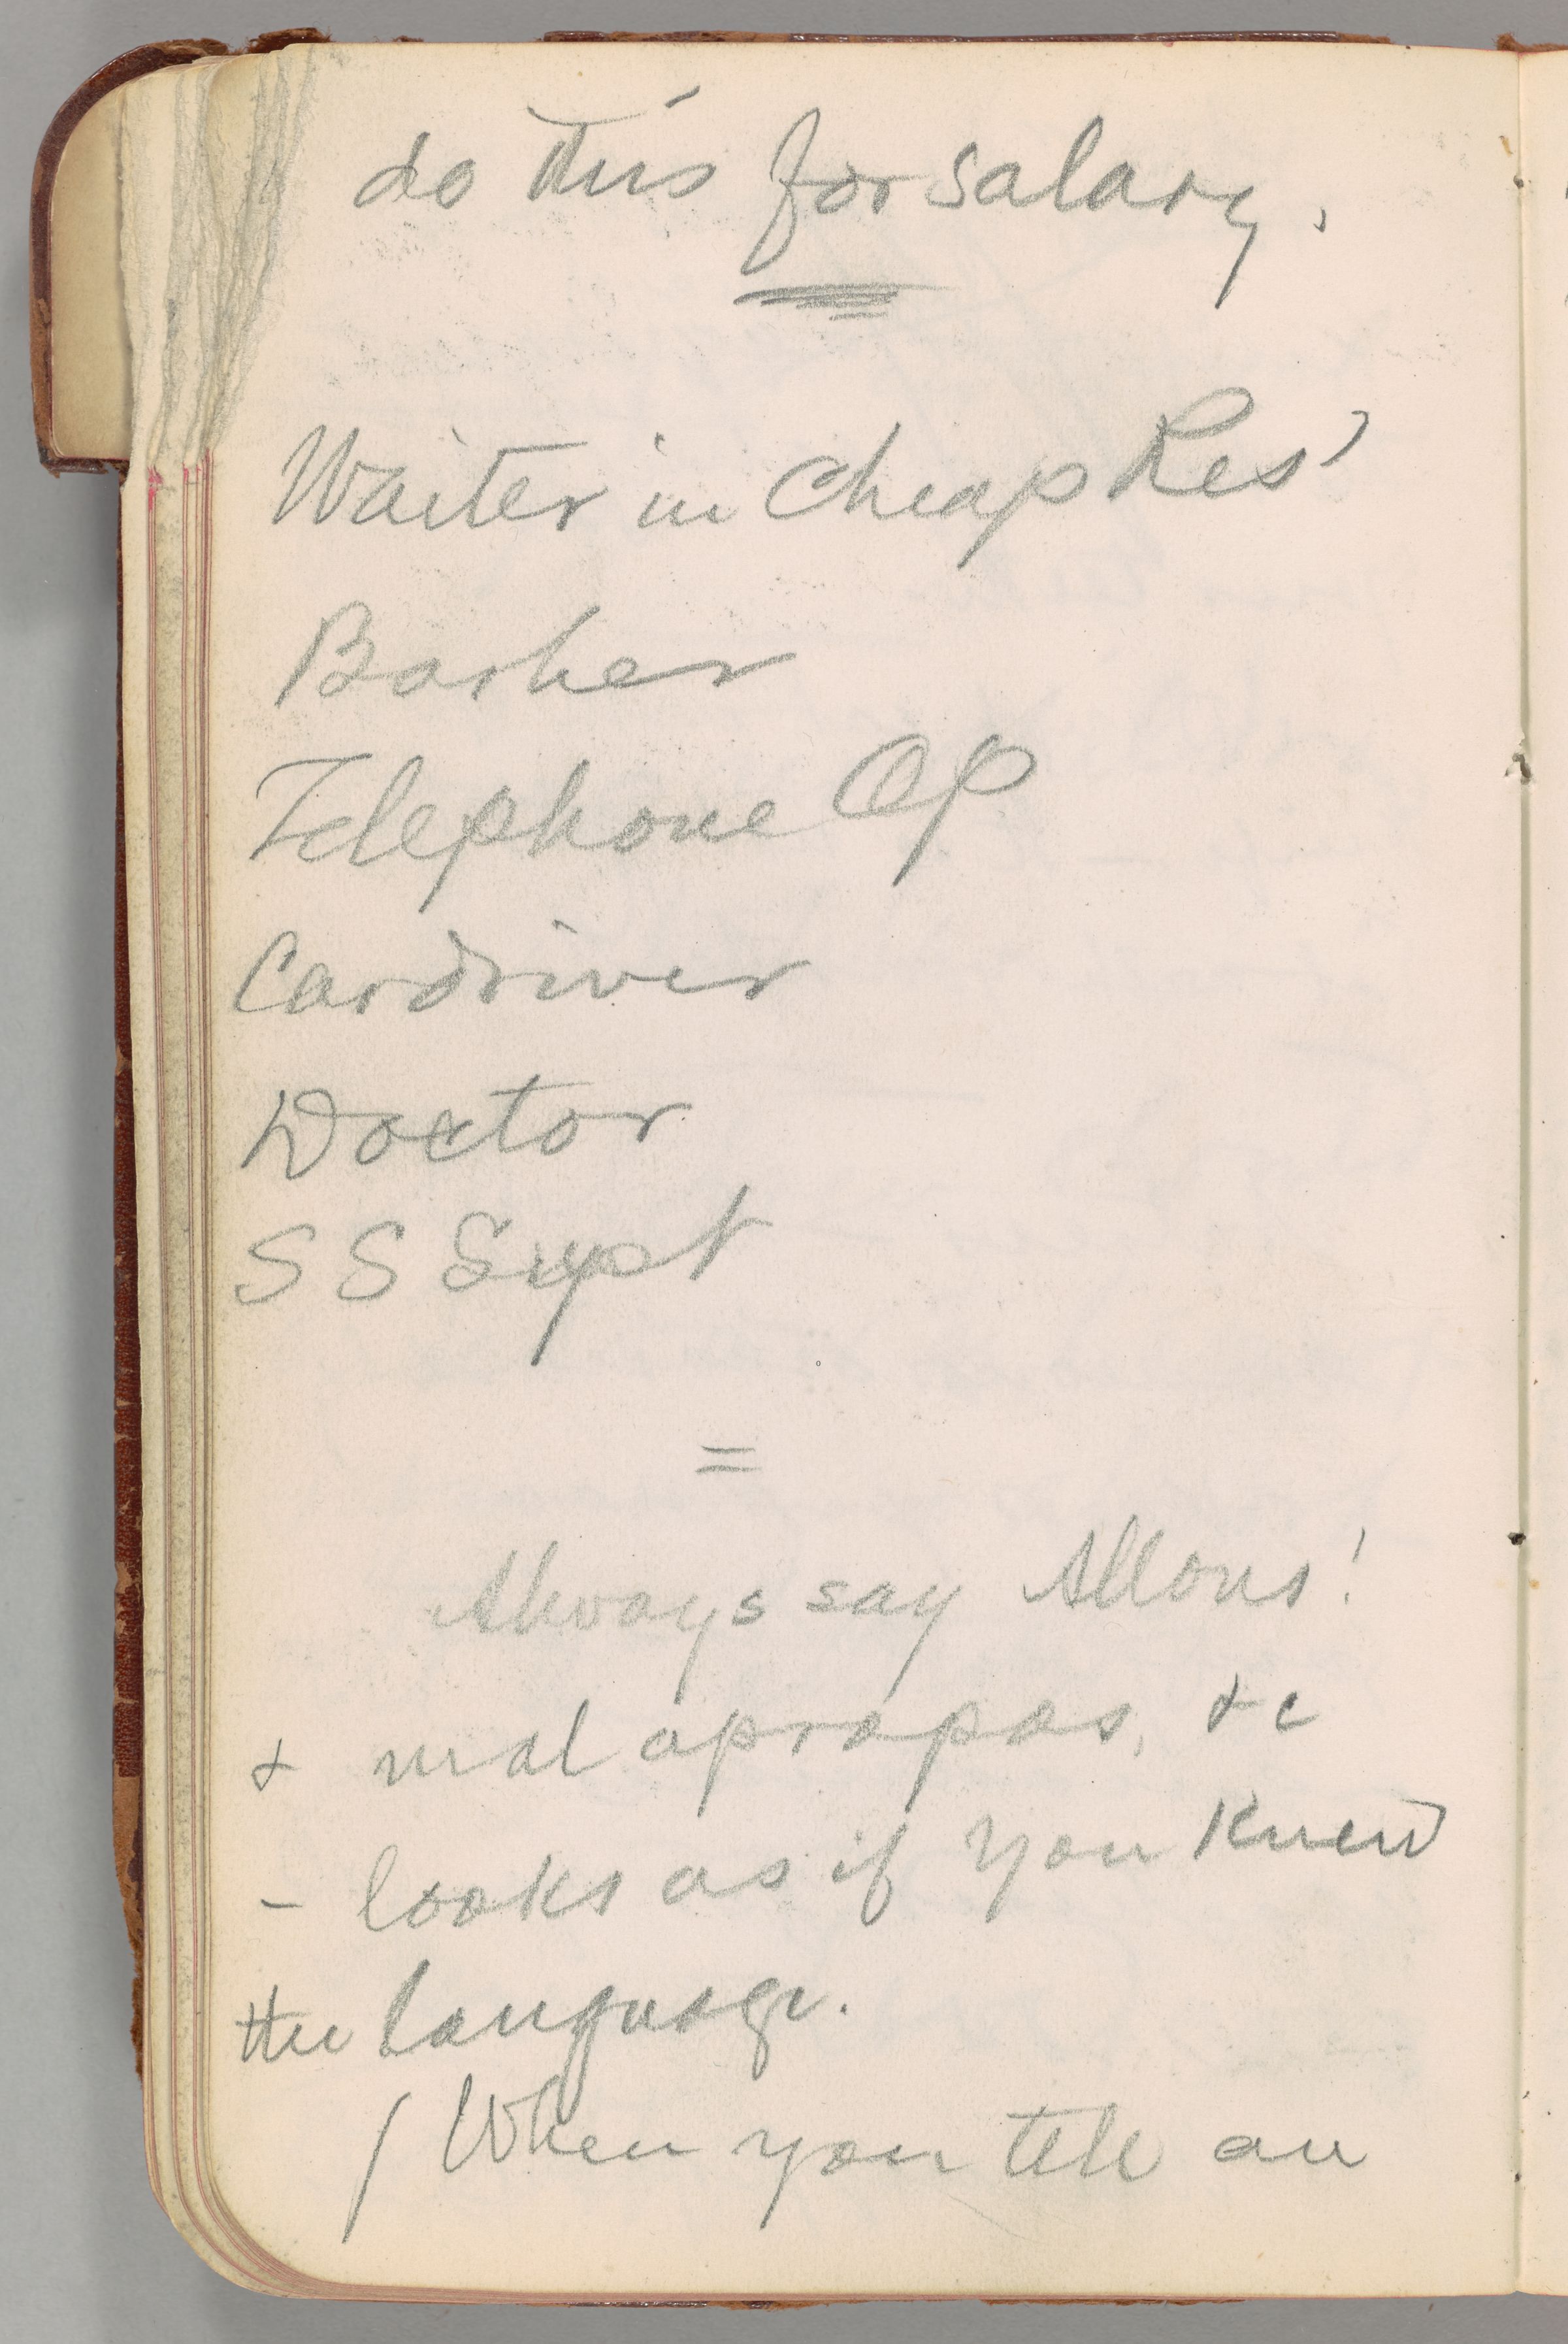 do this for salary.
Waiter in Cheap Res'
Barber
Telephone Op
Cardriver
Doctor
S S Supt
=
Always say Allons!
& mal apropos, &c
– looks as if you knew
the language.
/ When you tell an